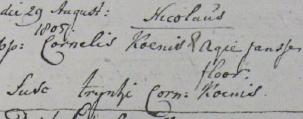 die 29 August: Nicolaus
1808.
pp: Cornelis Koenis & Agie Jansse
floor.
Susc tryntje Corn: Koenis.